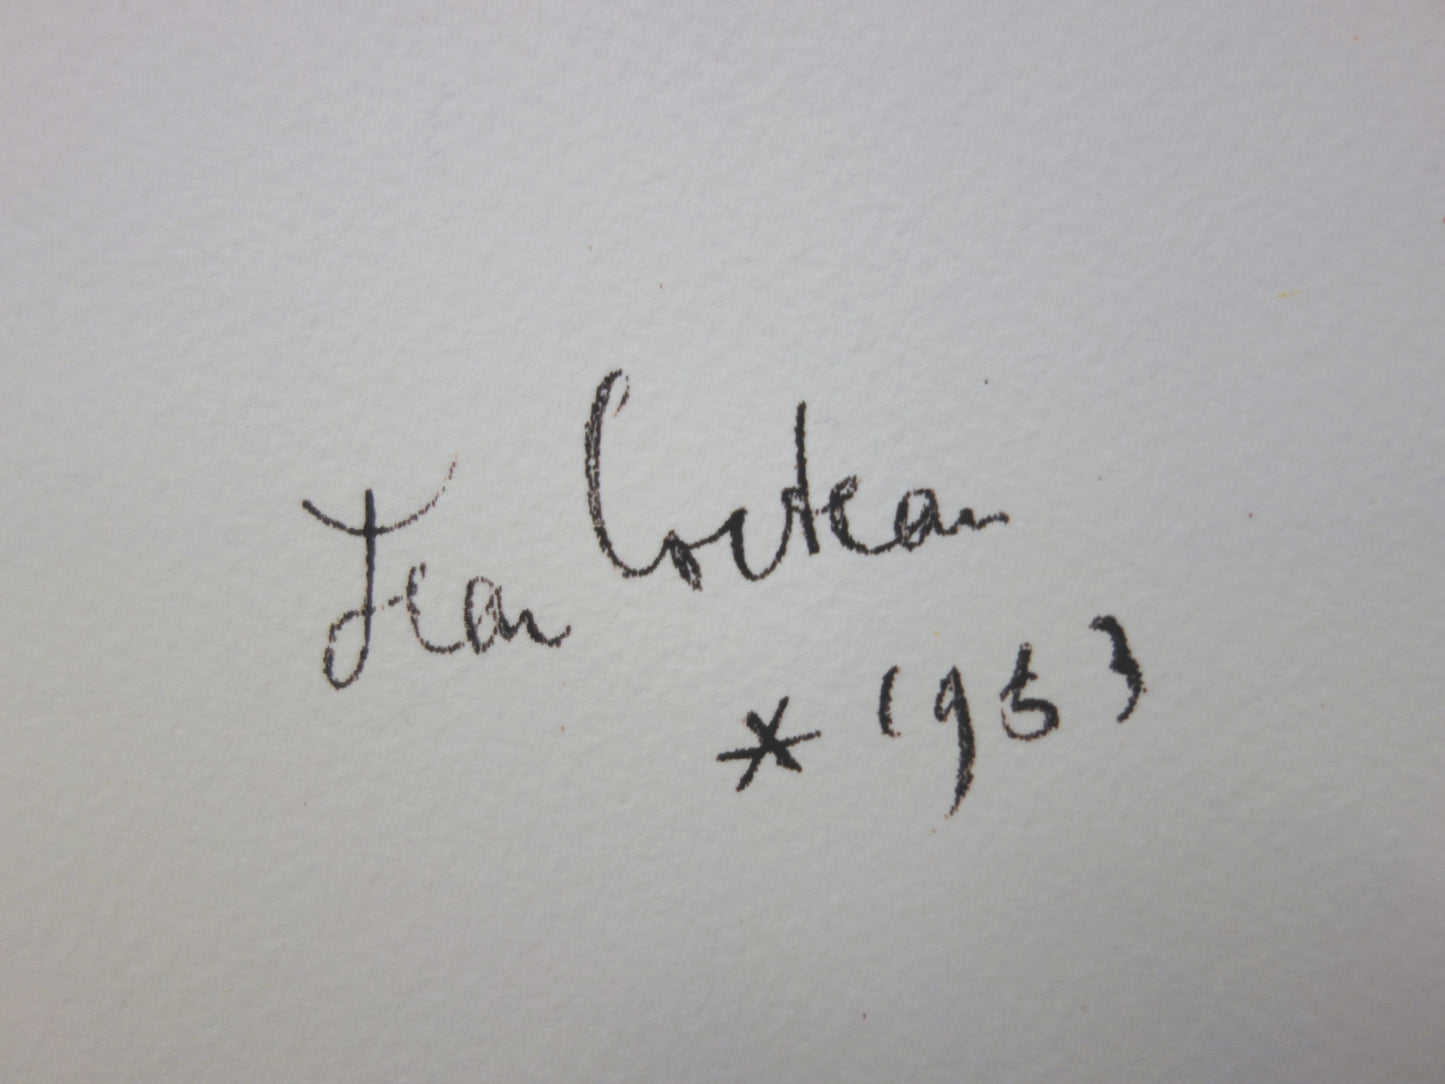 Jean Cocteau
* 1953